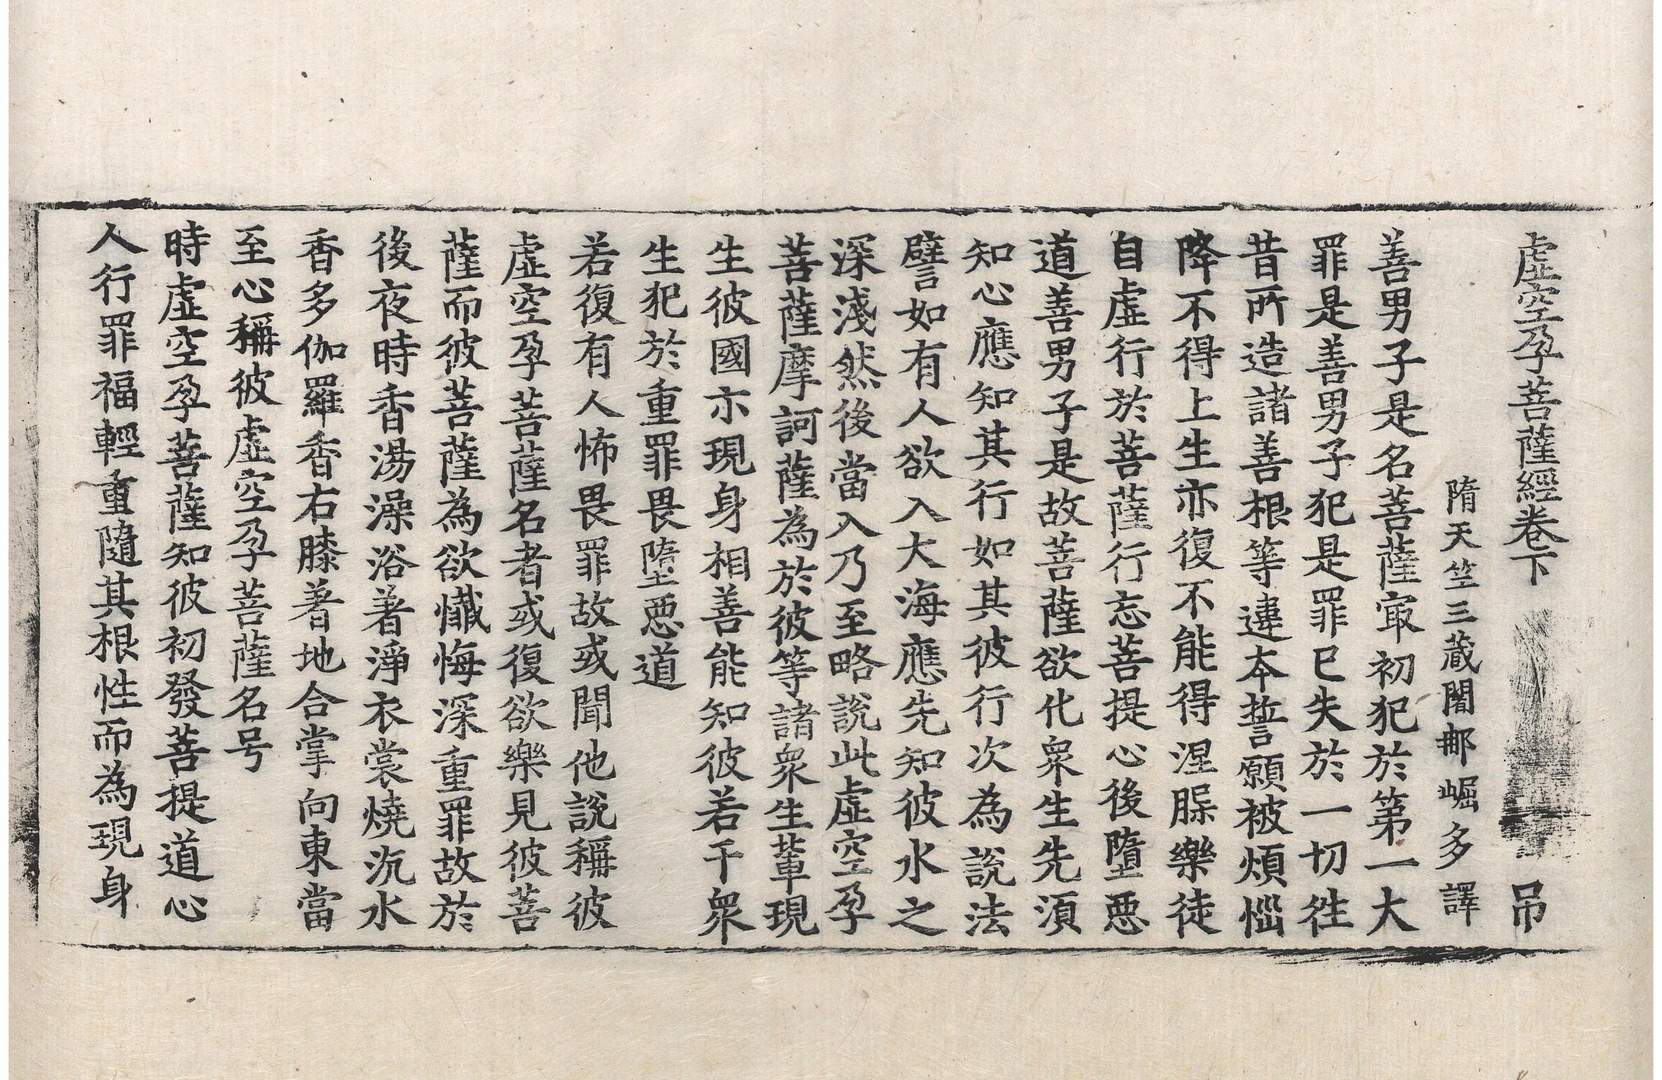 虛空孕菩薩經卷下 吊
隋天竺三藏闍那崛多譯
善男子是名菩薩㝡初犯於第一大
罪是善男子犯是罪已失於一切徃
昔所造諸善根等違本誓願被煩惱
降不得上生亦復不能得涅槃樂徒
自虛行於菩薩行忘菩提心後墮惡
道善男子是故菩薩欲化衆生先湏
知心應知其行如其彼行次為說法
譬如有人欲入大海應先知彼水之
深淺然後當入乃至略說此虛空孕
菩薩摩訶薩為於彼等諸衆生輩現
生彼國示現身相善能知彼若干衆
生犯於重罪畏墮惡道
若復有人怖畏罪故或聞他說稱彼
虛空孕菩薩名者或復欲樂見彼菩
薩而彼菩薩為欲懺悔深重罪故於
後夜時香湯澡浴著淨衣裳燒沉水
香多伽羅香右膝著地合掌向東當
至心稱彼虛空孕菩薩名号
時虛空孕菩薩知彼初發菩提道心
人行罪福輕重隨其根性而為現身